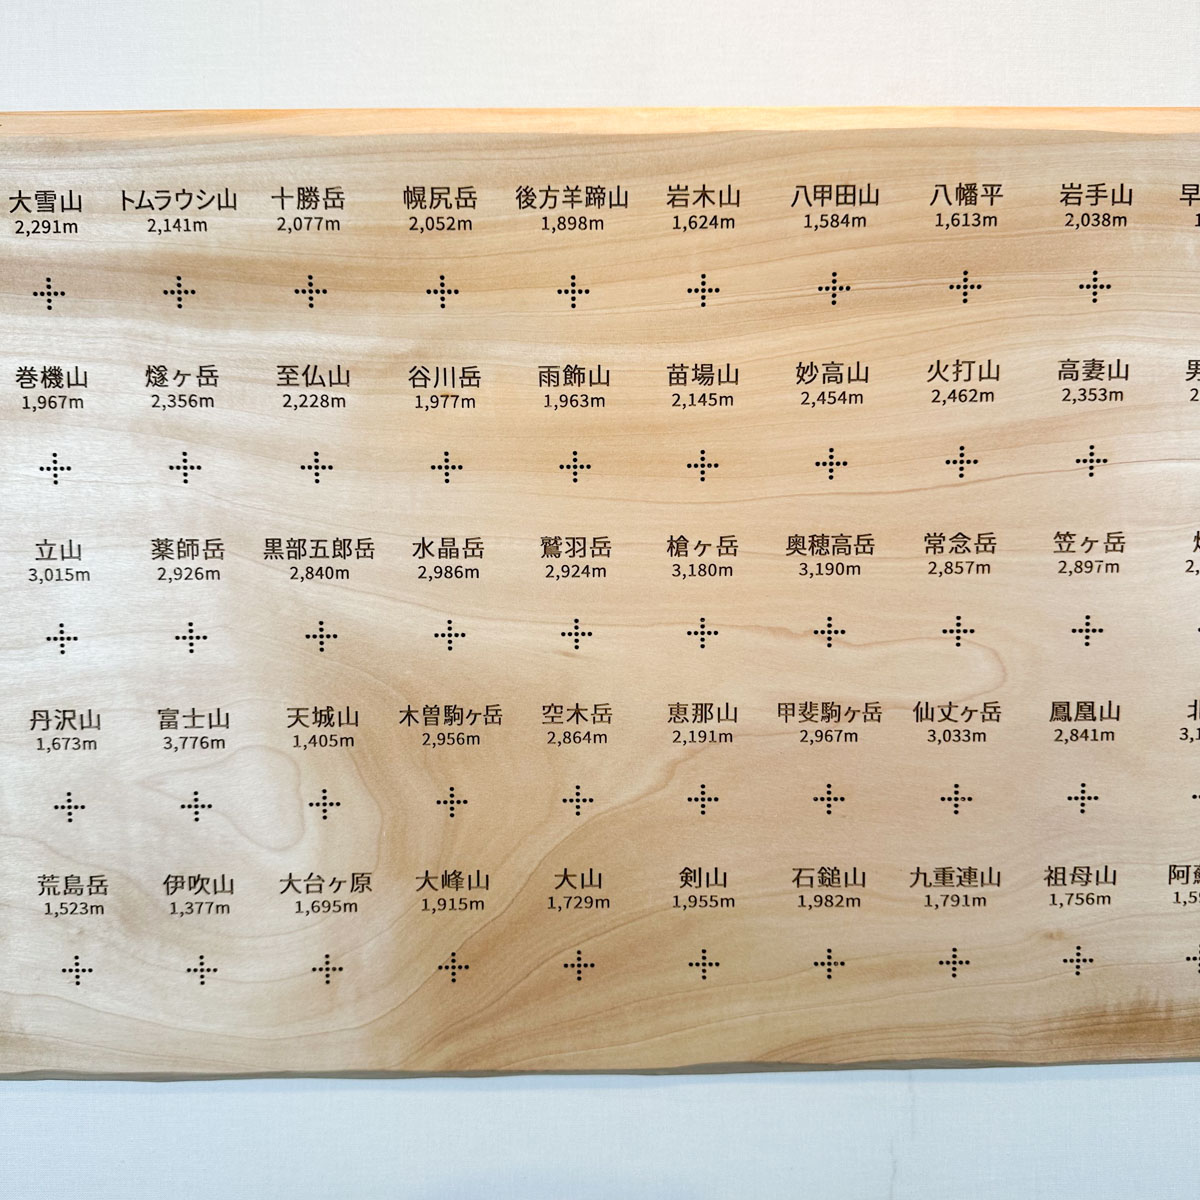 大雪山 トムラウシ山 十勝岳 幌尻岳 後方羊蹄山 岩木山 八甲田山 八幡平 岩手山 早
2,291m 2,141m 2,077m 2,052m 1,898m 1,624m 1,584m 1,613m 2,038m
巻機山 燧ヶ岳 至仏山 谷川岳 雨飾山 苗場山 妙高山 火打山 高妻山
1,967m 2,356m 2,228m 1,977m 1,963m 2,145m 2,454m 2,462m 2,353m
立山 薬師岳 黒部五郎岳 水晶岳 鷲羽岳 槍ヶ岳 奥穂高岳 常念岳 笠ヶ岳
3,015m 2,926m 2,840m 2,986m 2,924m 3,180m 3,190m 2,857m 2,897m
丹沢山 富士山 天城山 木曽駒ヶ岳 空木岳 恵那山 甲斐駒ヶ岳 仙丈ヶ岳 鳳凰山
1,673m 3,776m 1,405m 2,956m 2,864m 2,191m 2,967m 3,033m 2,841m
荒島岳 伊吹山 大台ヶ原 大峰山 大山 剣山 石鎚山 九重連山 祖母山 阿
1,523m 1,377m 1,695m 1,915m 1,729m 1,955m 1,982m 1,791m 1,756m